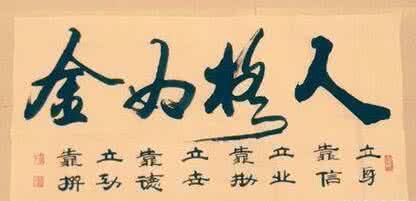 人格如金
立身
靠信
立业
靠勤
立世
靠德
立功
靠拼